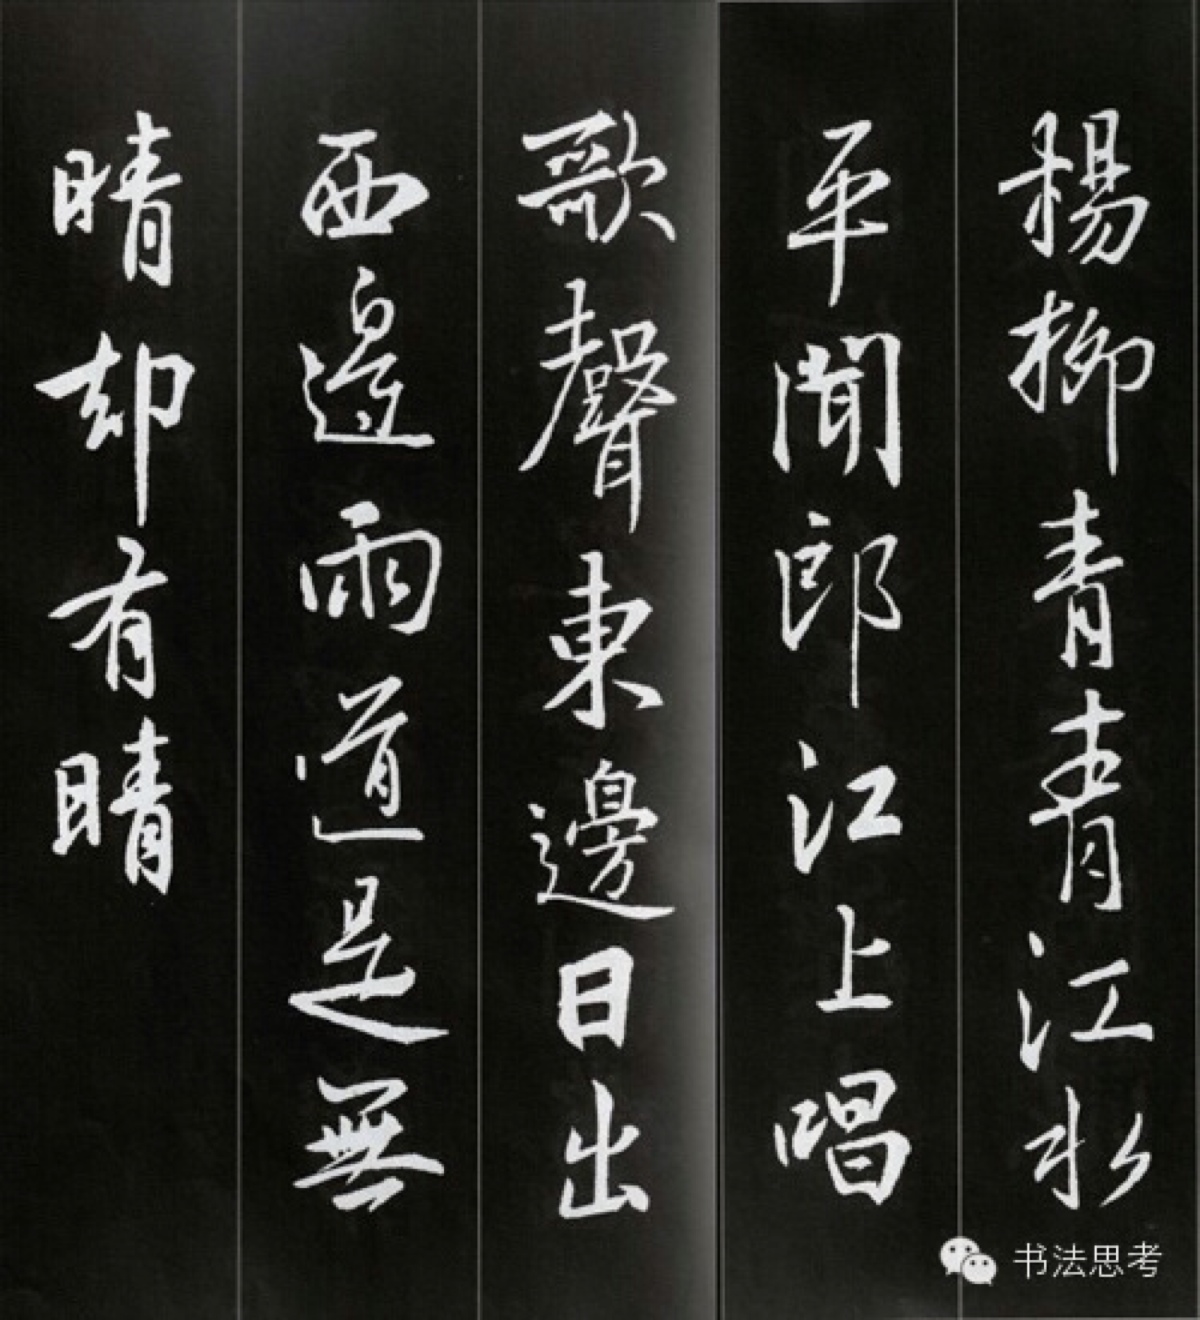 楊柳青青江水
平聞郎江上唱
歌聲東邊日出
西邊雨道是無
晴却有晴
书法思考